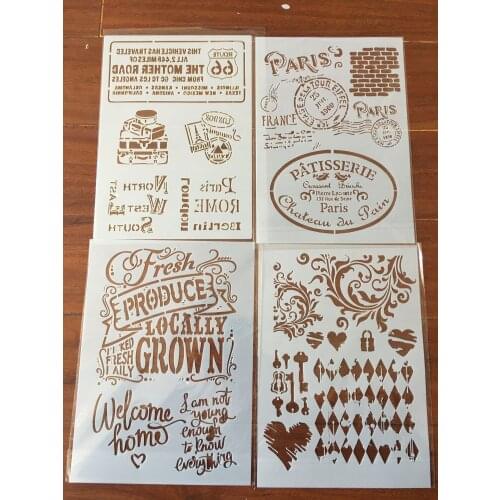 ROUTE
66
THIS VEHICLE HAS TRAVELED
ALL 2,448 MILES OF
THE MOTHER ROAD
FROM CHIC GO TO LOS ANGELES
ILLINOIS • MISSOURI • KANSAS • OKLAHOMA
TEXAS • NEW MEXICO • ARIZONA • CALIFORNIA
LONDON
NORTH
WEST
EAST
SOUTH
Paris
London
ROME
Berlin
PARIS
DE LA TOUR EIFFEL
FRANCE
PARIS
PÂTISSERIE
Croissant Brioche
Pierre Lacomte
137 Rue de Seine
Paris
Chateau du Pain
Fresh
PRODUCE
LOCALLY
GROWN
FRESH
DAILY
Welcome
home
I am not
young
enough
to know
everything